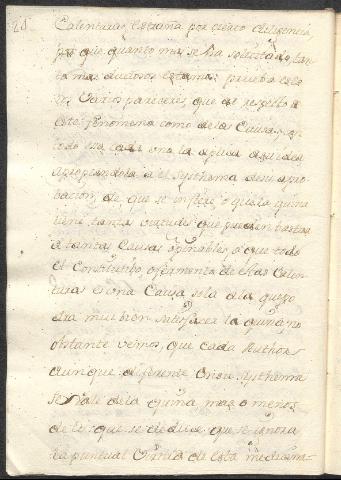 25
Calenturas, estriva por cierto diligencia,
por que quanto mas se ha solicitado, tan-
to mas dudosos estamos: prueba esto
los varios pareceres, que al respeto a
este fenomeno como de las Causas, con
todo esso cada uno la aplica a su idea
apropiandola a el Systhema de su apro-
bacion, de que se infiere o que la quina
tiene tantas virtudes que pueden bastar
a tantas Causas opinables, o que todo
el Constitutibo, o fermento de las Calen-
turas es una Causa sola a la que po-
dra mui bien satisfacer la quina, no
obstante vemos, que cada Author
aunque diferente en su Systhema
se vale de la quina mas o menos
de lo que se deduce que se ignora
la puntual virtud de esta medicina-